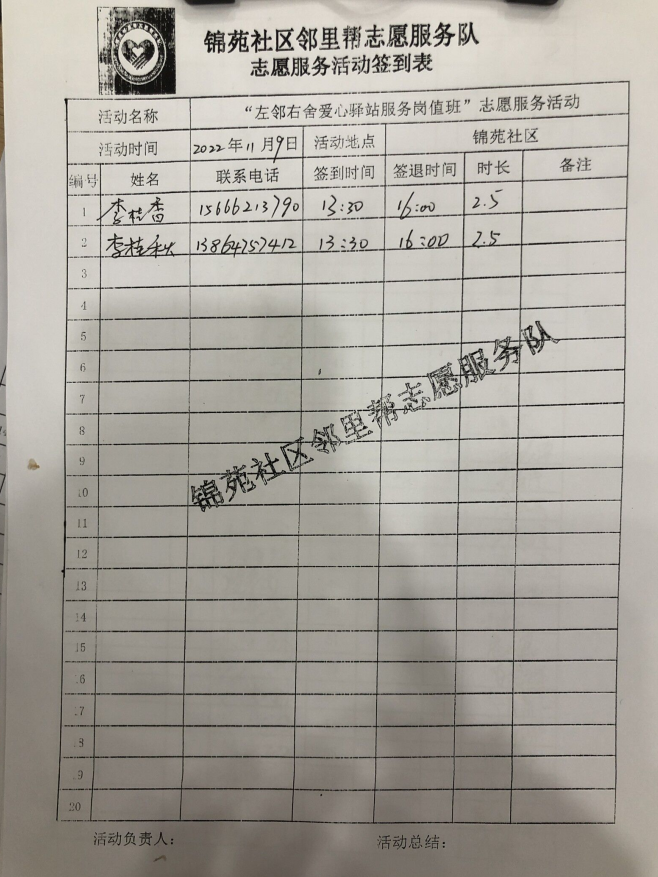 锦苑社区邻里帮志愿服务队
志愿服务活动签到表
活动名称 “左邻右舍爱心驿站服务岗值班”志愿服务活动
活动时间 2022年11月9日 活动地点 锦苑社区
编号 姓名 联系电话 签到时间 签退时间 时长 备注
1 李桂香 15666213790 13:30 16:00 2.5
2 李桂秋 13864757412 13:30 16:00 2.5
3
4
5
6
7
8
9
10
11
12
13
14
15
16
17
18
19
20
锦苑社区邻里帮志愿服务队
活动负责人: 活动总结: